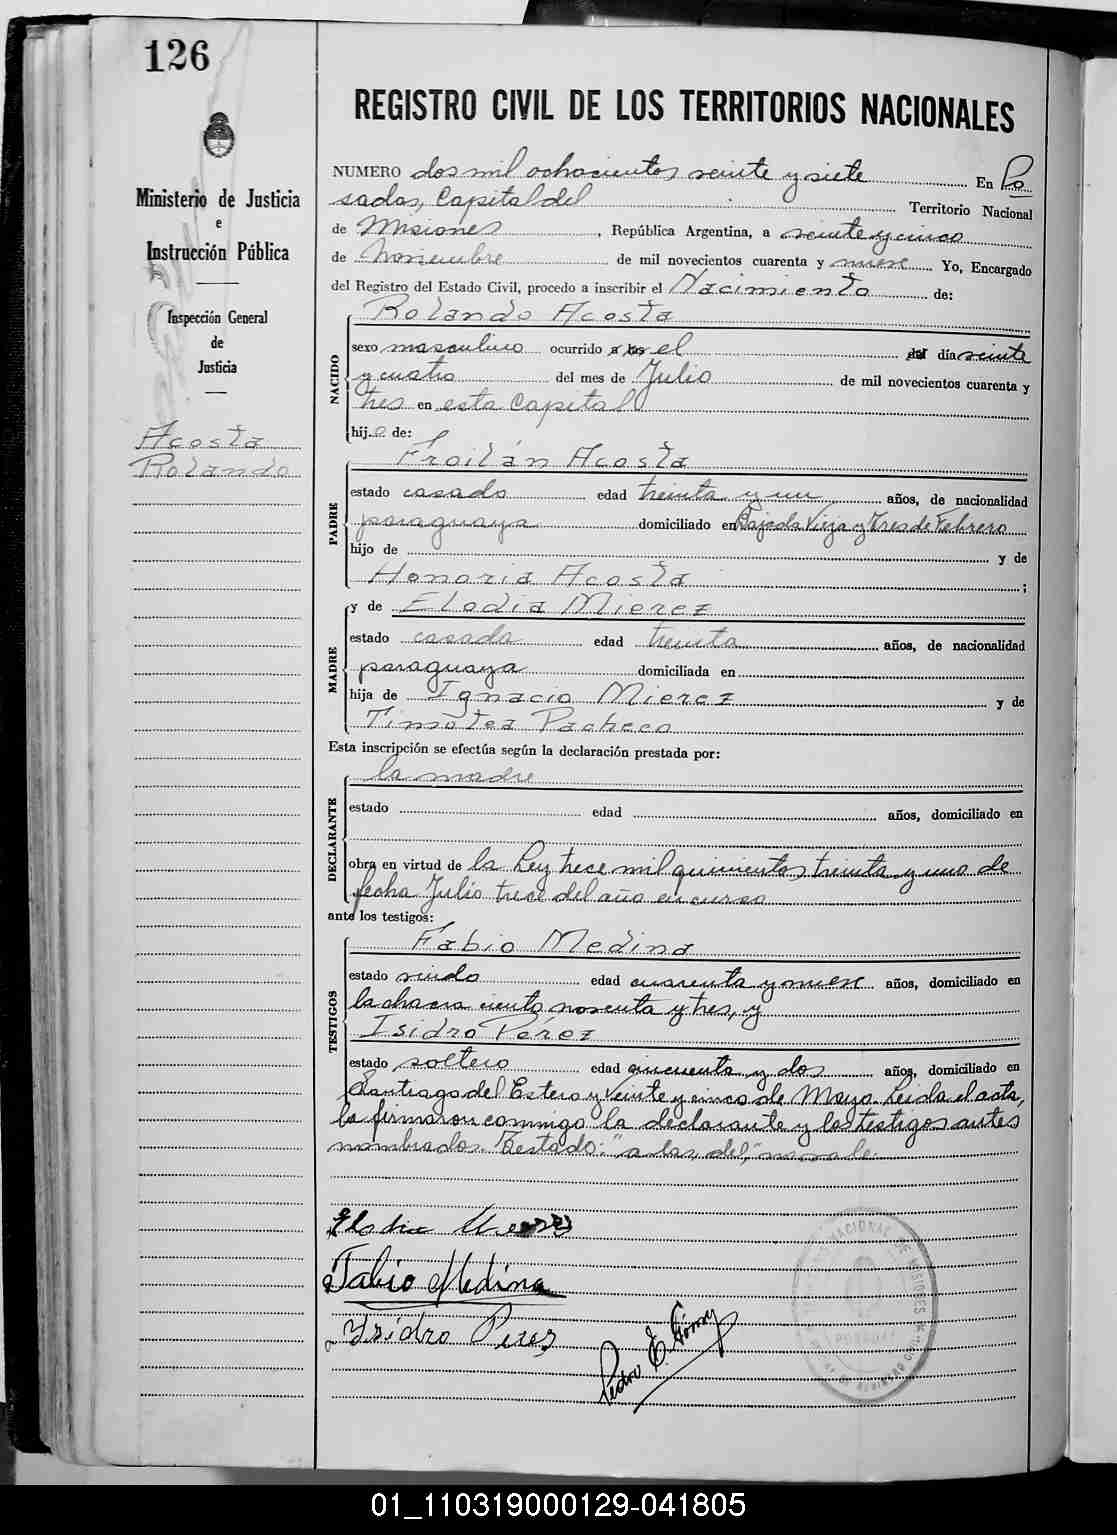 126
Ministerio de Justicia
e
Instrucción Pública
Inspección General
de
Justicia
Acosta
Rolando
REGISTRO CIVIL DE LOS TERRITORIOS NACIONALES
NUMERO dos mil ochocientos veinte y siete En Po
sadas, Capital del Territorio Nacional
de Misiones, República Argentina, a veinte y cinco
de Noviembre de mil novecientos cuarenta y nueve Yo, Encargado
del Registro del Estado Civil, procedo a inscribir el Nacimiento de:
NACIDO
Rolando Acosta
sexo masculino ocurrido a las el del día veinte
y cuatro del mes de Julio de mil novecientos cuarenta y
tres en esta Capital
hijo de:
PADRE
Froilán Acosta
estado casado edad treinta y un años, de nacionalidad
paraguaya domiciliado en Bajada Vieja y Tres de Febrero
hijo de y de
Honoria Acosta ;
MADRE
y de Elodia Mierez
estado casada edad treinta años, de nacionalidad
paraguaya domiciliada en
hija de Ignacio Mierez y de
Timótea Pacheco
Esta inscripción se efectúa según la declaración prestada por:
DECLARANTE
la madre
estado edad años, domiciliado en
obra en virtud de la Ley trece mil quinientos treinta y uno de
fecha Julio trece del año en curso
ante los testigos:
TESTIGOS
Fabio Medina
estado viudo edad cuarenta y nueve años, domiciliado en
la chacra ciento noventa y tres, y
Isidro Pérez
estado soltero edad cincuenta y dos años, domiciliado en
Santiago del Estero y Veinte y cinco de Mayo. Leida el acta,
la firmaron conmigo la declarante y los testigos antes
nombrados. Testado: "a las, del," no vale.
Elodia Mierez
Fabio Medina
Ysidro Perez
Pedro E. Gómez
NACIONAL DE MISIONES
POSADAS
01_110319000129-041805